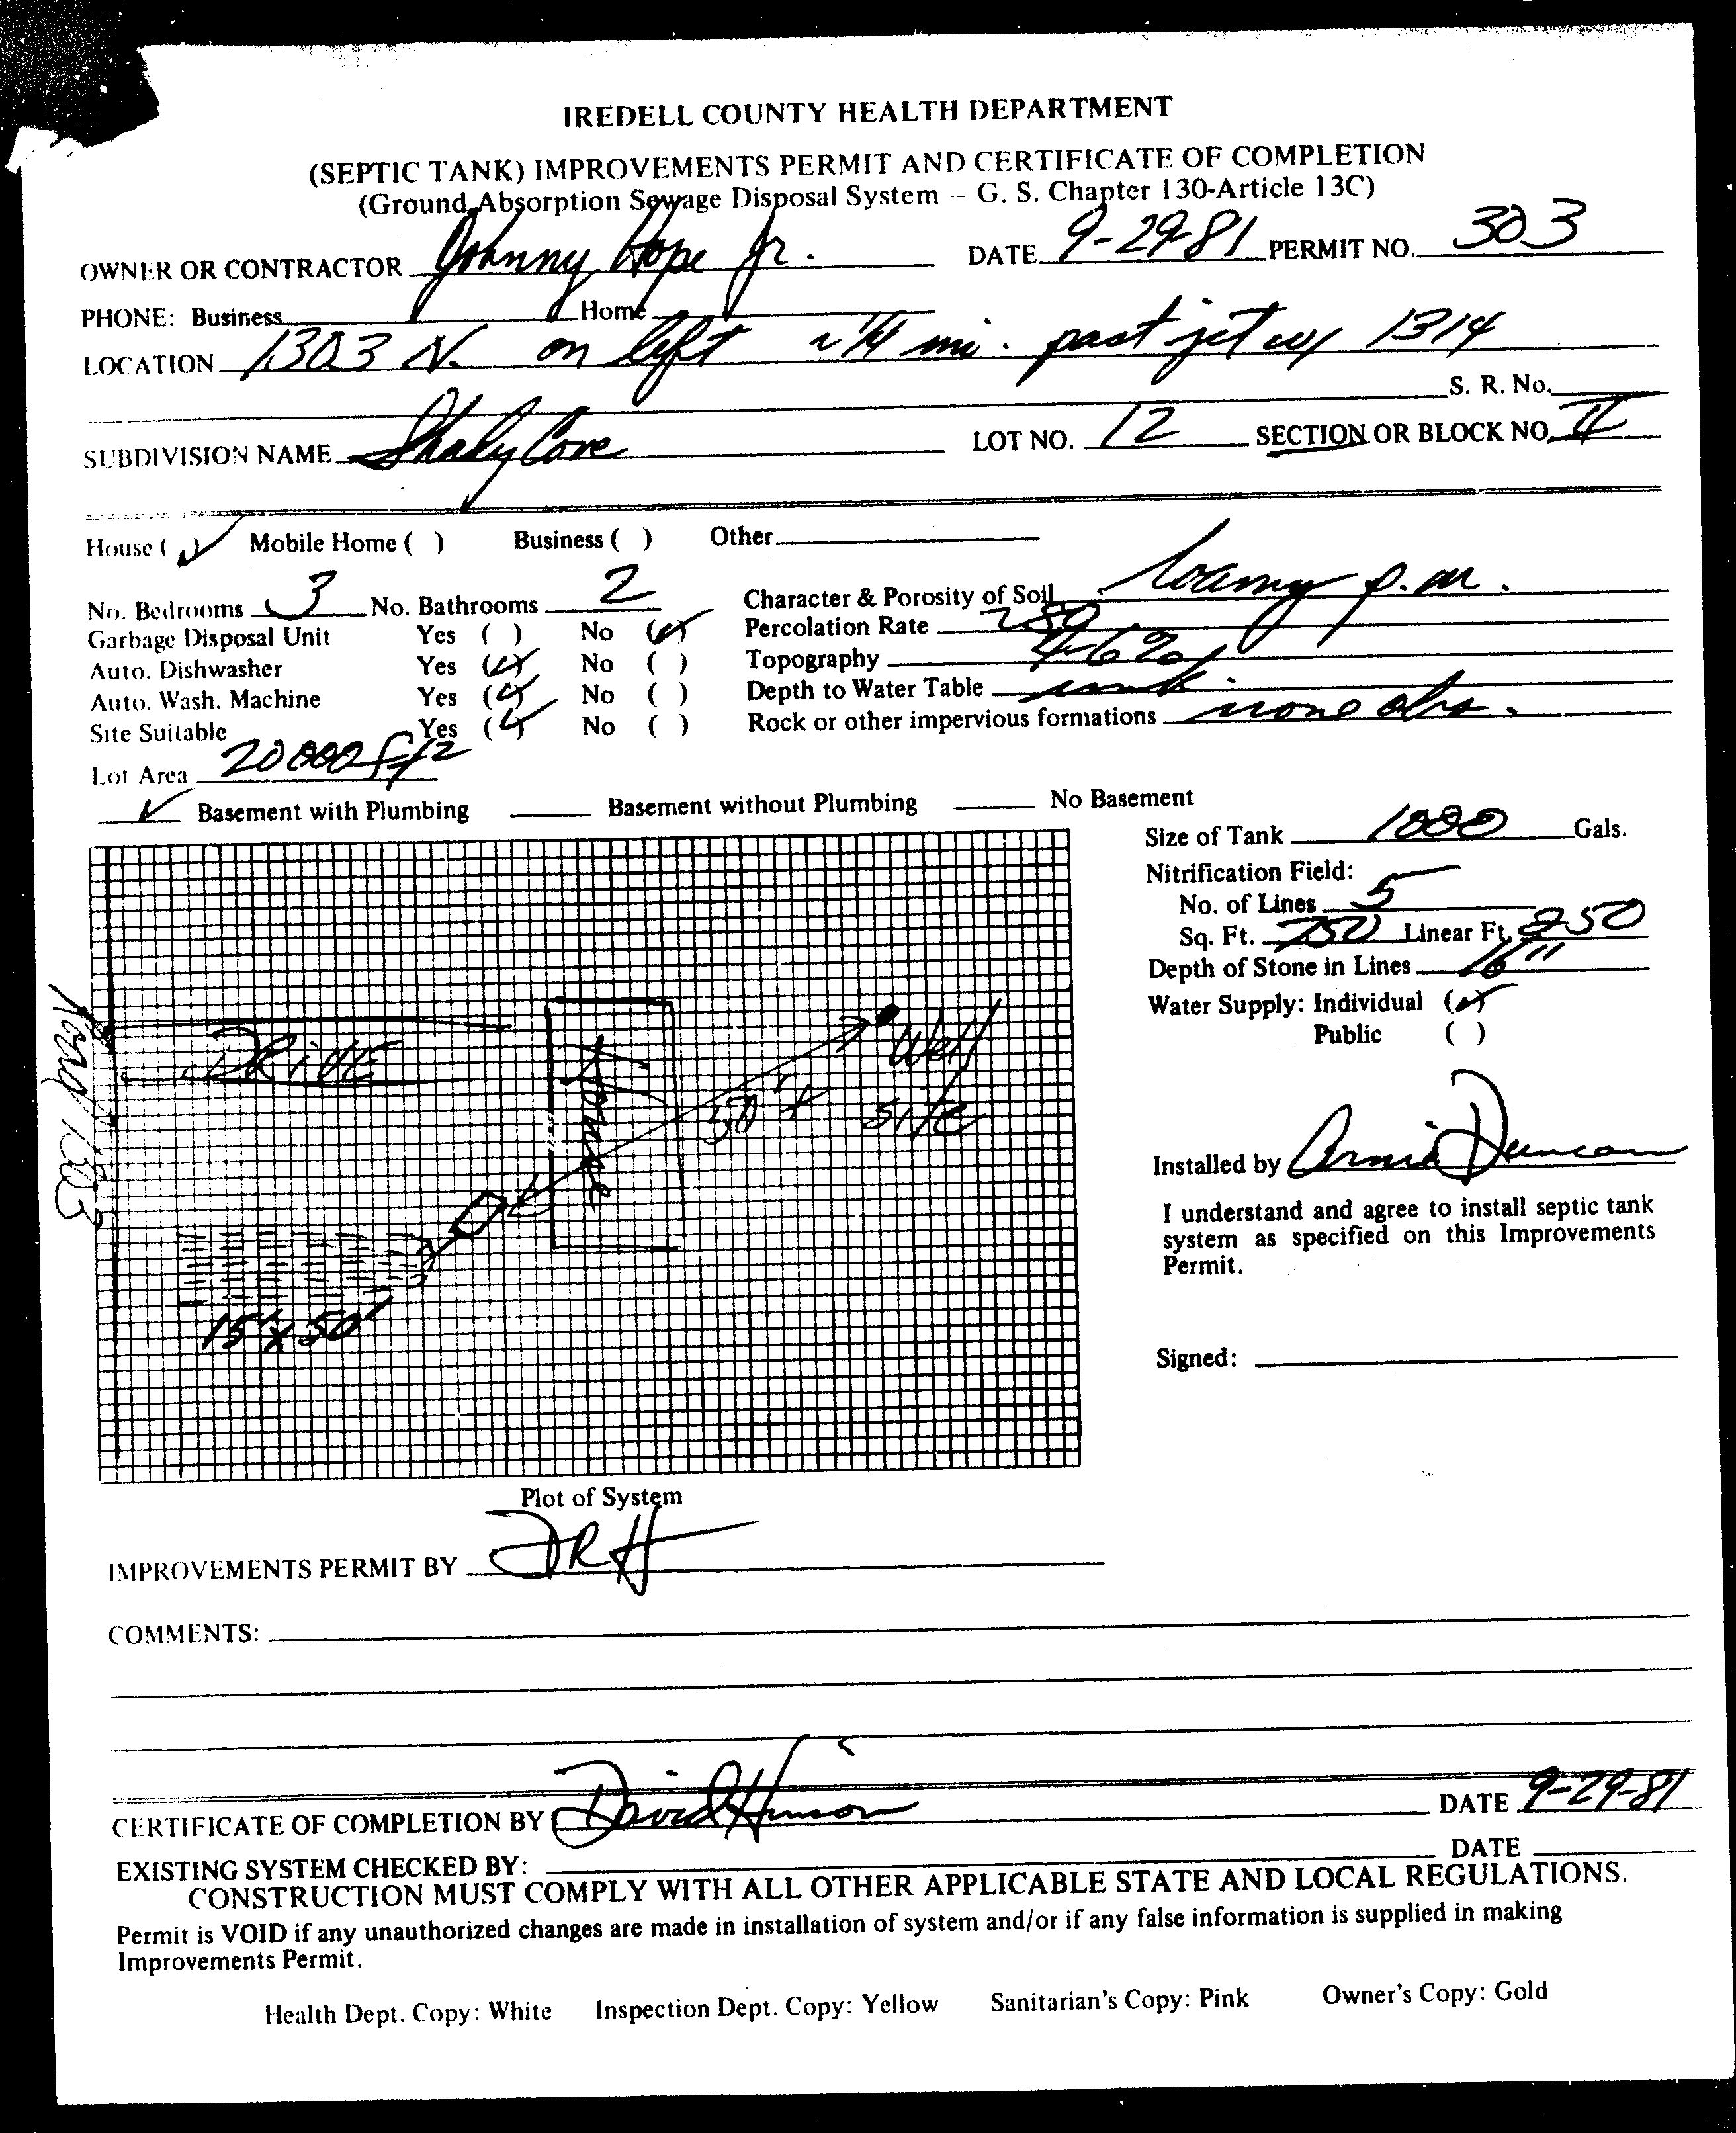 IREDELL COUNTY HEALTH DEPARTMENT
(SEPTIC TANK) IMPROVEMENTS PERMIT AND CERTIFICATE OF COMPLETION
(Ground Absorption Sewage Disposal System – G. S. Chapter 130-Article 13C)
OWNER OR CONTRACTOR Johnny Hope Jr. DATE 9-29-81 PERMIT NO. 303
PHONE: Business Home
LOCATION 1303 N. on left ~ 1/4 mi. past jct w/ 1314
S. R. No.
SUBDIVISION NAME Shady Cove LOT NO. 12 SECTION OR BLOCK NO. II
House (✓) Mobile Home ( ) Business ( ) Other
No. Bedrooms 3 No. Bathrooms 2 Character & Porosity of Soil loamy p.m.
Garbage Disposal Unit Yes ( ) No (✓) Percolation Rate
Auto. Dishwasher Yes (✓) No ( ) Topography 4-6%
Auto. Wash. Machine Yes (✓) No ( ) Depth to Water Table unk.
Site Suitable Yes (✓) No ( ) Rock or other impervious formations none obs.
Lot Area 20000 ft2
✓ Basement with Plumbing Basement without Plumbing No Basement
Size of Tank 1000 Gals.
Nitrification Field:
No. of Lines 5
Sq. Ft. 750 Linear Ft. 250
Depth of Stone in Lines 16"
Water Supply: Individual (✓)
Public ( )
Road 1303
DRIVE
House
Well
site
50'+
15' x 50'
Installed by Arnie Duncan
I understand and agree to install septic tank
system as specified on this Improvements
Permit.
Signed:
Plot of System
IMPROVEMENTS PERMIT BY DRH
COMMENTS:
CERTIFICATE OF COMPLETION BY David Hinson DATE 9-29-81
EXISTING SYSTEM CHECKED BY: DATE
CONSTRUCTION MUST COMPLY WITH ALL OTHER APPLICABLE STATE AND LOCAL REGULATIONS.
Permit is VOID if any unauthorized changes are made in installation of system and/or if any false information is supplied in making
Improvements Permit.
Health Dept. Copy: White Inspection Dept. Copy: Yellow Sanitarian's Copy: Pink Owner's Copy: Gold